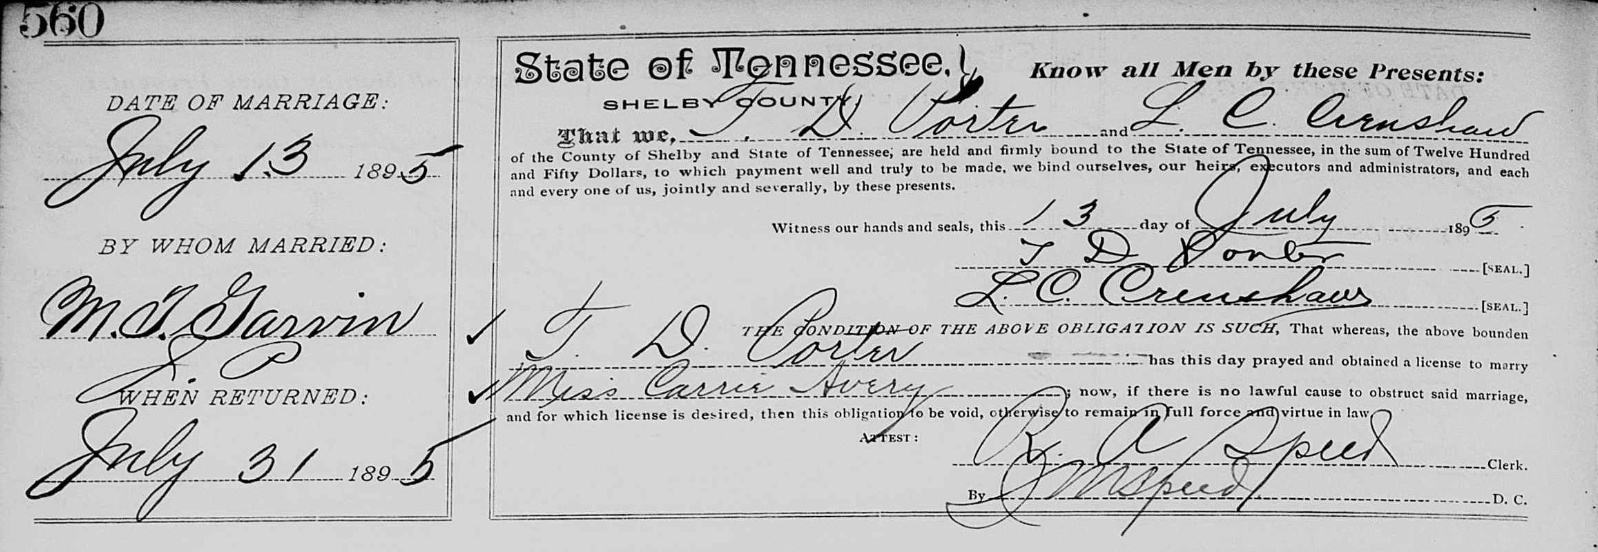 560
DATE OF MARRIAGE:
July 13 1895
BY WHOM MARRIED:
M.T. Garvin
J. P.
WHEN RETURNED:
July 31 1895
State of Tennessee,
SHELBY COUNTY
Know all Men by these Presents:
That we, T. D. Porter and L. C. Crenshaw
of the County of Shelby and State of Tennessee, are held and firmly bound to the State of Tennessee, in the sum of Twelve Hundred
and Fifty Dollars, to which payment well and truly to be made, we bind ourselves, our heirs, executors and administrators, and each
and every one of us, jointly and severally, by these presents.
Witness our hands and seals, this 13 day of July 1895
T D Porter [SEAL.]
L. C. Crenshaw [SEAL.]
THE CONDITION OF THE ABOVE OBLIGATION IS SUCH, That whereas, the above bounden
T. D. Porter has this day prayed and obtained a license to marry
Miss Carrie Avery ; now, if there is no lawful cause to obstruct said marriage,
and for which license is desired, then this obligation to be void, otherwise to remain in full force and virtue in law.
ATTEST:
R. A Speed Clerk.
By J M Speed D. C.